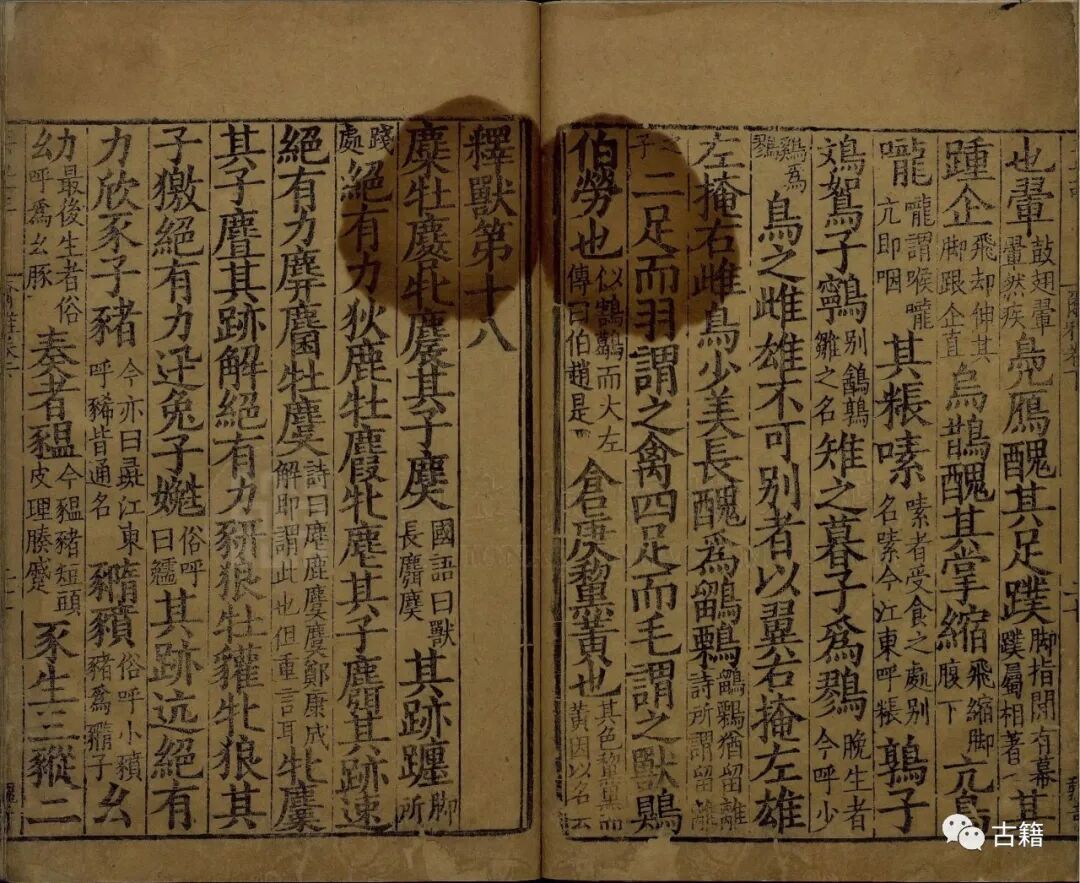 也翬鼓翅翬翬然疾鳧鴈醜其足蹼脚指間有幕蹼屬相著其
踵企飛却伸其脚跟企直烏鵲醜其掌縮飛縮脚腹下亢鳥
嚨嚨謂喉嚨亢即咽其粻嗉嗉者受食之處别名嗉今江東呼粻鶉子
鳼鴽子鸋别鷭鶉雛之名雉之暮子爲鷚晚生者今呼少
雞爲鷚鳥之雌雄不可别者以翼右掩左雄
左掩右雌鳥少美長醜爲鶹鷅鶹鷅猶留離詩所謂留離之
子二足而羽謂之禽四足而毛謂之獸鶪
伯勞也似鶷鶡而大左傳曰伯趙是倉庚黧黃也其色黧黑而黃因以名云
釋獸第十八
麋牡麔牝麎其子䴠國語曰獸長麛䴠其跡躔脚所
踐處絕有力狄鹿牡麚牝麀其子麛其跡速
絕有力麉麕牡麌詩曰麀鹿麌麌鄭康成解即謂此也但重言耳牝麜
其子麆其跡解絕有力豜狼牡獾牝狼其
子獥絕有力迅兔子嬎俗呼曰䨲其跡迒絕有
力欣豕子豬今亦曰彘江東呼豨皆通名䝐豶俗呼小豶豬爲䝐子幺
幼最後生者俗呼爲幺豚奏者豱今豱豬短頭皮理腠蹙豕生三豵二
古籍